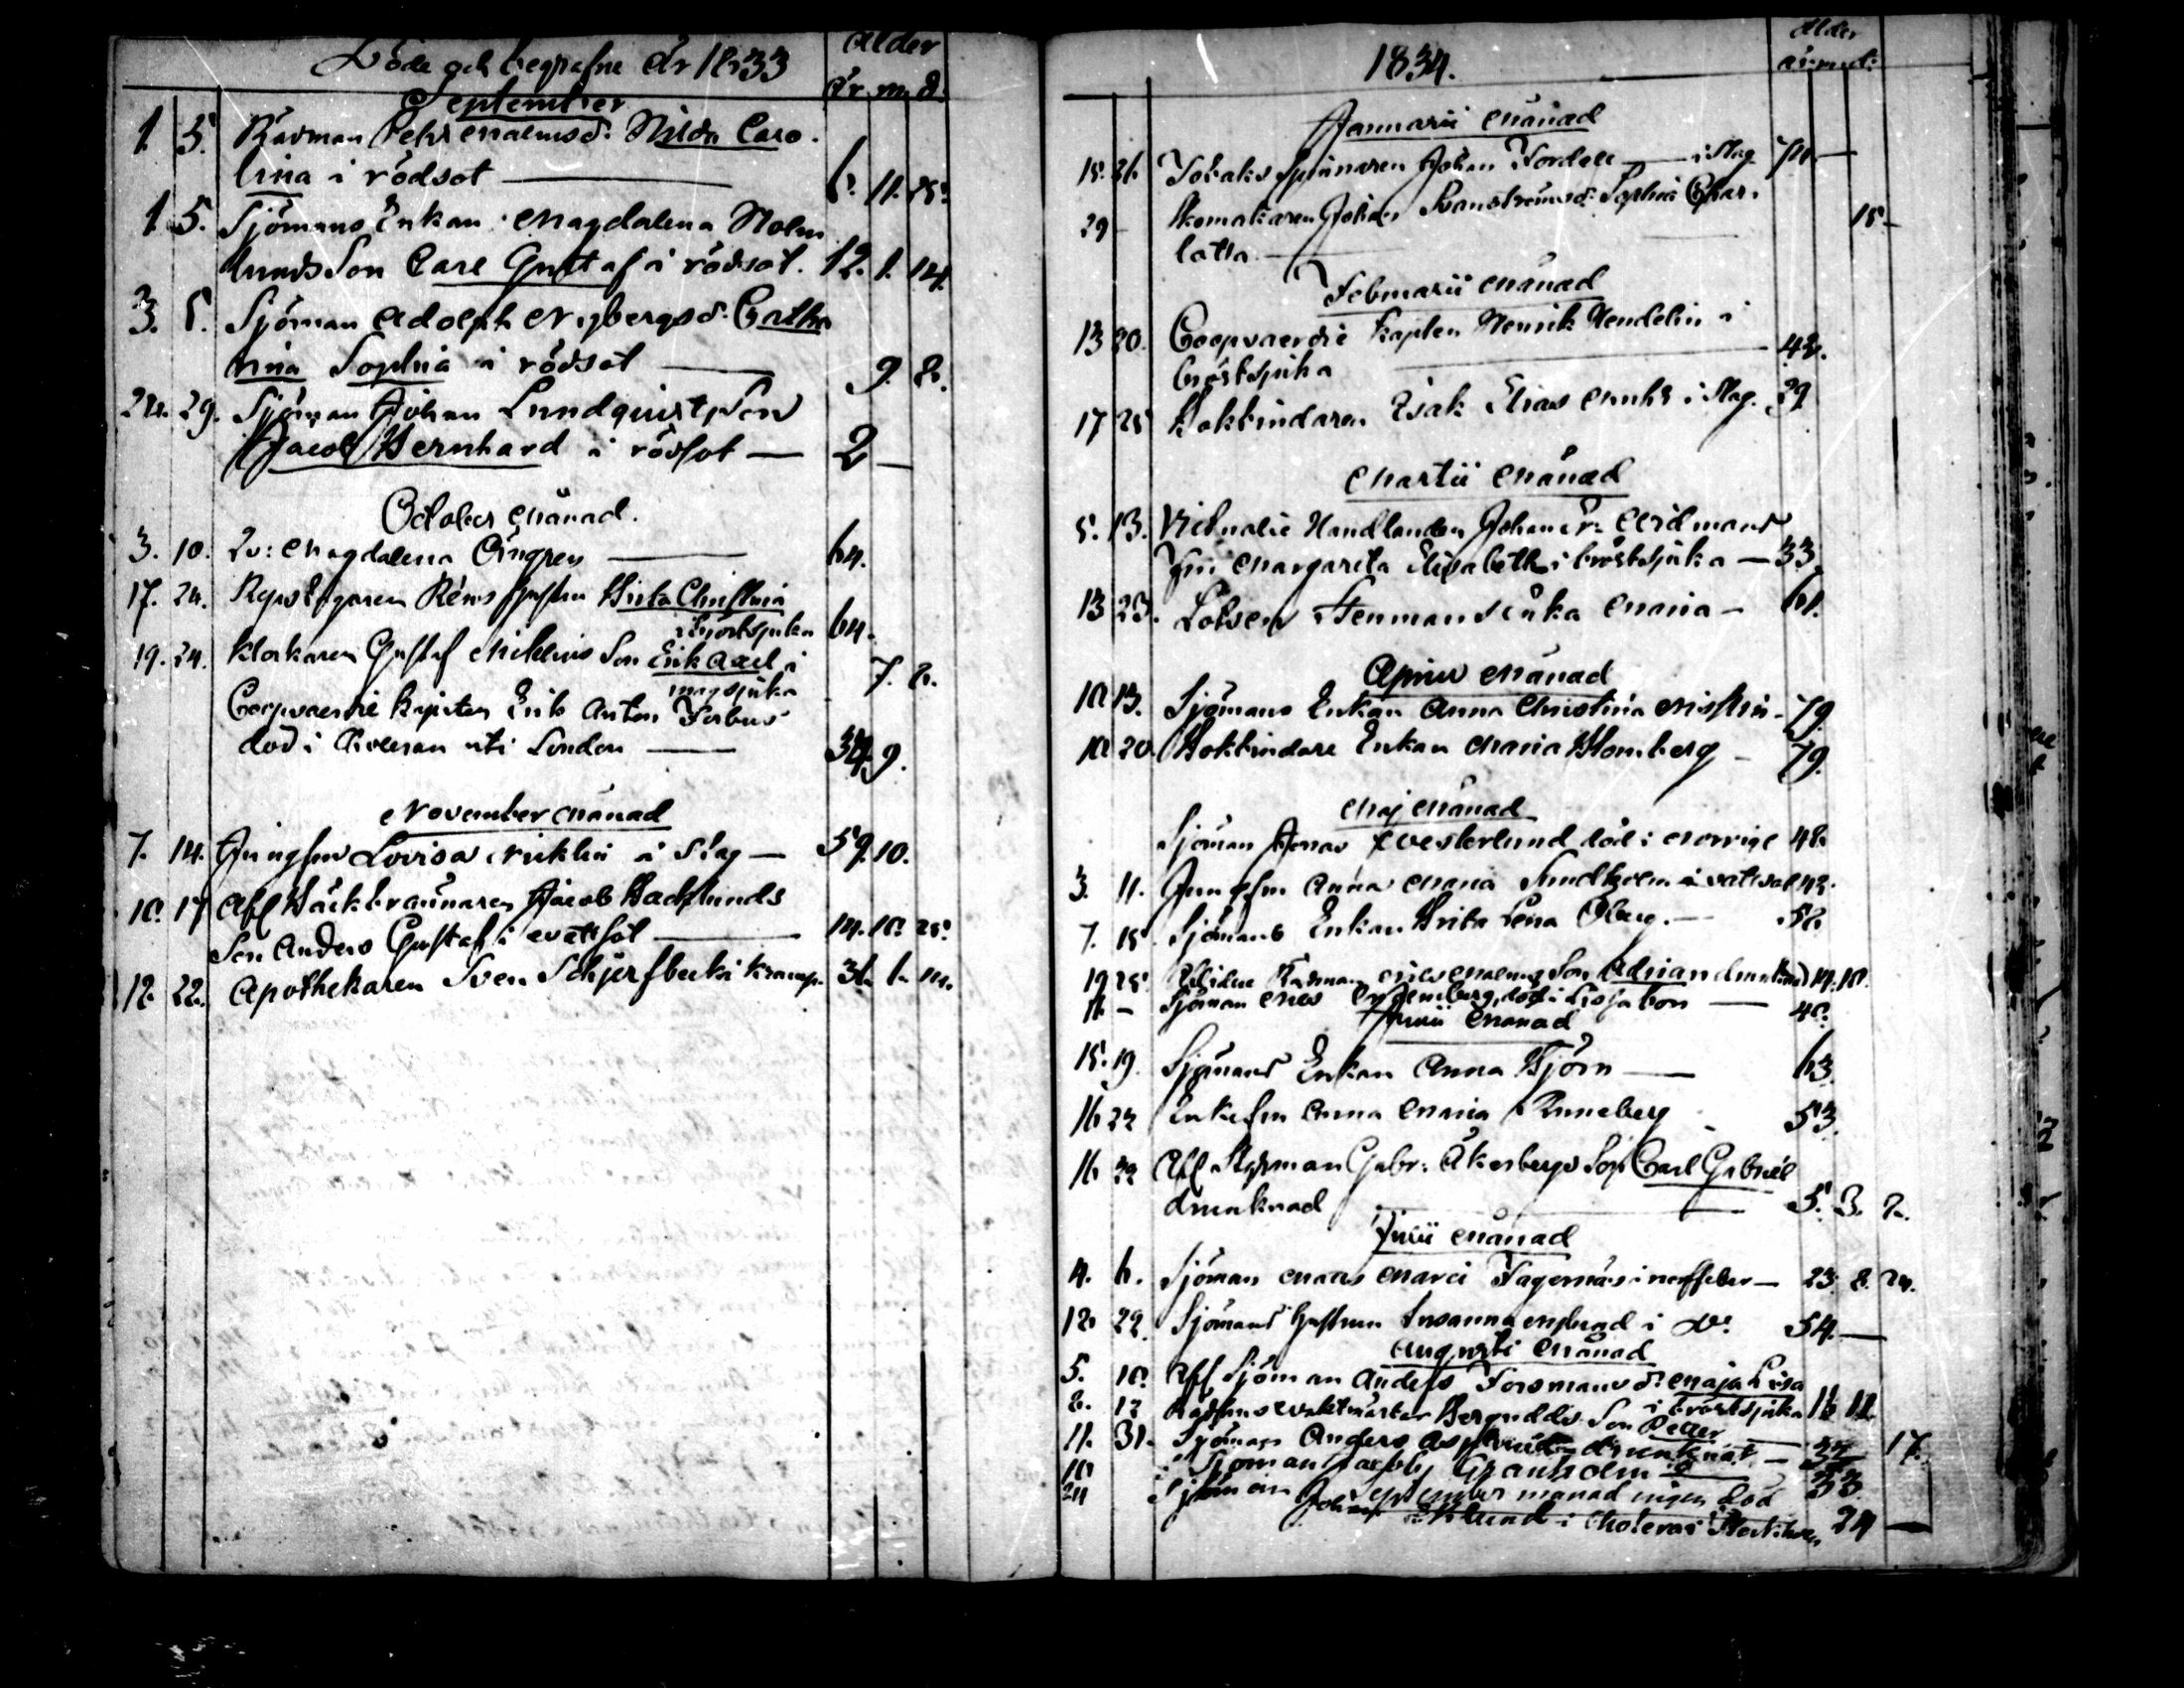 Döde och begrafne År 1833 Ålder
År. m. d.
September
1. 5. Rådman Pehr Malmsd. Hilda Caro-
lina i rödsot — 6. 11. 25.
1. 5. Sjömans Enkan Magdalena Holm
lunds Son Carl Gustaf i rödsot. 12. 1. 14.
3. 8. Sjöman Adolph Nybergs d. Catha
rina Sophia i rödsot — 9. 8.
24. 29. Sjöman Johan Lundqvist Son
Jacob Bernhard i rödsot — 2 —
October Månad.
3. 10. Magdalena Ångren — 64.
17. 24. Repslagaren Hustru Brita Christina
i bröstsjuka 64.
19. 24. Klockaren Gustaf Miklins Son Erik Axel i
magsjuka 7. 2.
Coopvaerdie Kapiten Erik Anton Forbus
död i Choleran uti London — 34. 9.
November Månad
7. 14. Jungfru Lovisa Miklin i Slag — 59. 10.
10. 17 Afl Bäckbraunaren Jacob Backlunds
Son Anders Gustaf i vattsot — 14. 10. 25.
12. 22. Apothekaren Sven Schjerfbeck i kramp. 36. 6. 14.
1834. Ålder
år. m. d.
Januarii Månad
18. 26. Tobaks Spinnaren Johan Fordell — i Slag 70 —
29 — Skomakaren Johan Svanströms d. Sophia Char-
lotta — 15 —
Februarii Månad
13 20. Coopvaerdie Kapten Henrik Wendelin i
bröstsjuka — 42.
17 25 Bokbindaren Isak Elias Munk i Slag. 29
Martii Månad
8. 13. Victualie Handlanden Johan Widmans
Fru Margareta Elisabeth i bröstsjuka — 33.
13 23. Lotsen Stenmans Enka Maria — 61.
April Månad
10. 13. Sjömans Enkan Anna Christina — 79.
10. 20. Bokbindare Enkan Maria Blomberg — 79.
Maj Månad
Sjöman Jonas Westerlund död i Norrige 48.
3. 11. Jungfru Anna Maria Sundholm i vattsot 42.
7. 15. Sjömans Enkan Brita Lena Öberg. — 58.
19 25. Rådman Son Adrian 14. 10.
16 — Sjöman död i Lissabon — 40.
Junii Månad
15. 19. Sjömans Enkan Anna Björn — 63.
16 22 Enkefru Anna Maria Runeberg — 53.
16 22 Afl Styrman Gabr: Åkerbergs Son Carl Gabriel
drunknad — 5. 3. 2.
Julii Månad
4. 6. Sjöman Mats Fagernäs i nerffeber — 23. 8. 24.
12. 22. Sjömans hustrun Susanna i d:o 54. —
Augusti Månad
5. 10. Afl Sjöman Anders Forsmans d: Maja Lisa
i bröstsjuka 16 11.
8. 12 Rådhus vaktmästar Bergudds Son Petter — 17.
11. 31. Sjöman Anders Asplund drunknat. — 32
10 Sjöman Granholm d:o — 33.
September månad ingen död
24 Sjöman Johan i Cholera i Stockholm 24 —